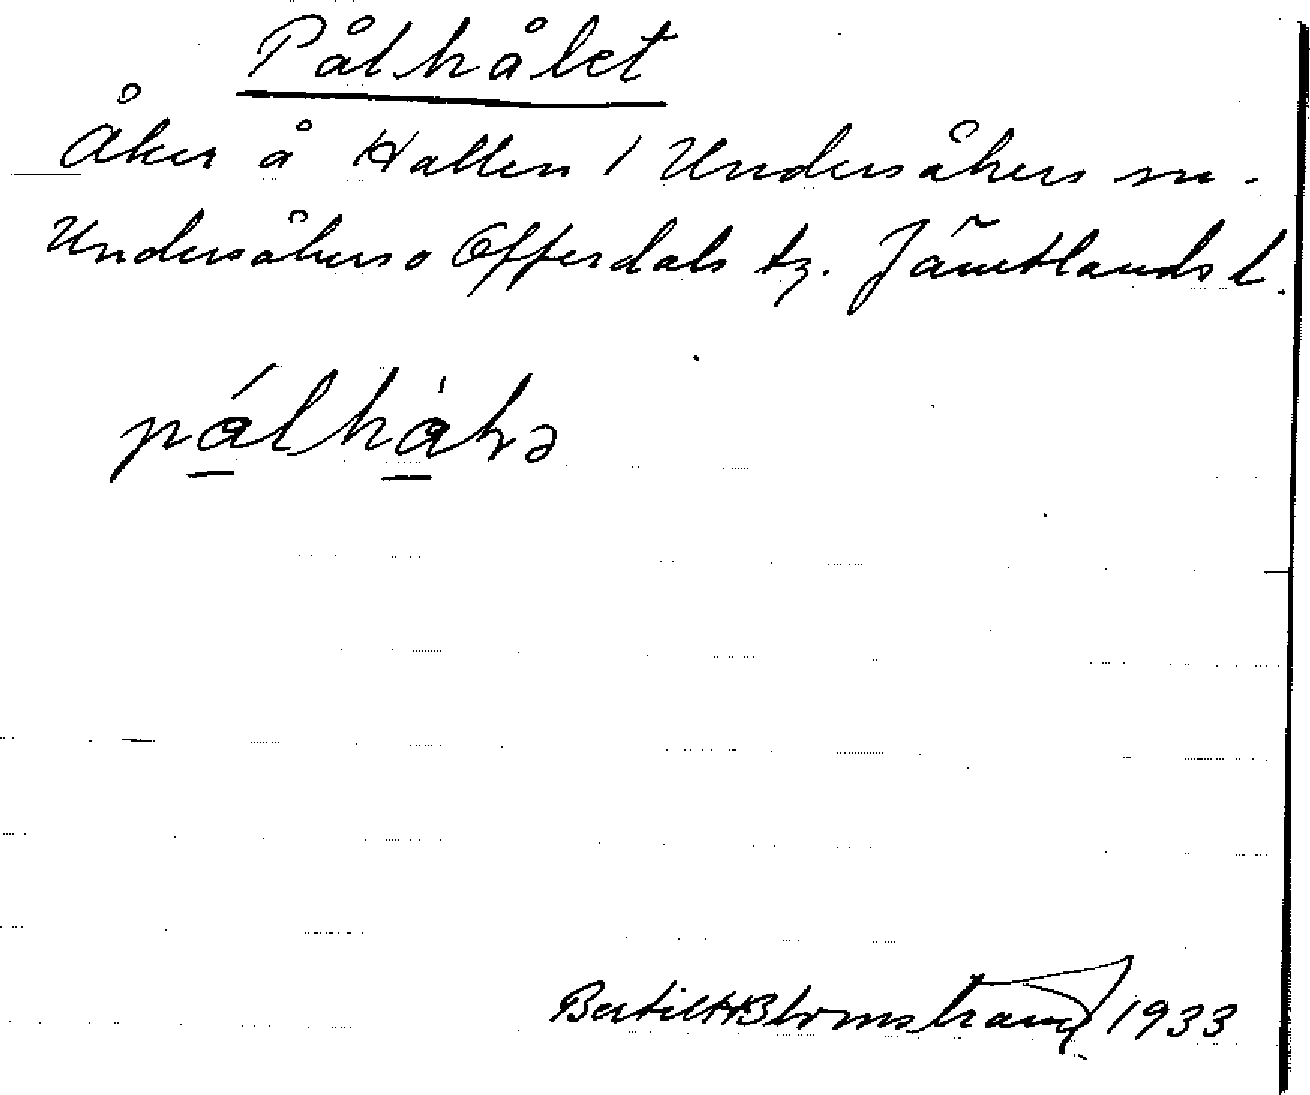 Pålhålet
Åker å Hallen 1 Undersåkers sn.
Undersåkers o Offerdals tg. Jämtlands l.
pålhålə
Bertil H Blomstrand 1933